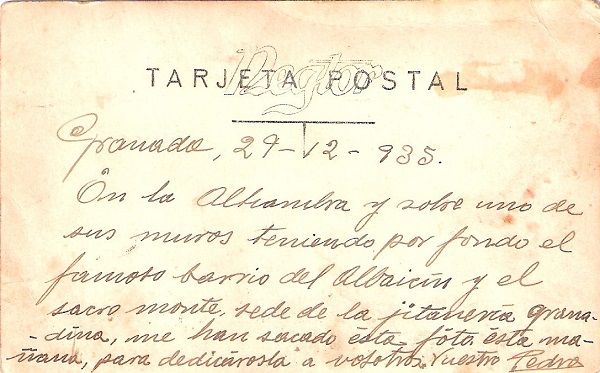 Negtor
TARJETA POSTAL
Granada, 29-12-935.
En la Alhambra y sobre uno de
sus muros teniendo por fondo el
famoso barrio del Albaicín y el
sacro monte, sede de la jitanería grana-
-dina, me han sacado ésta fóto ésta ma-
ñana, para dedicárosla a vosotros. Vuestro Pedro